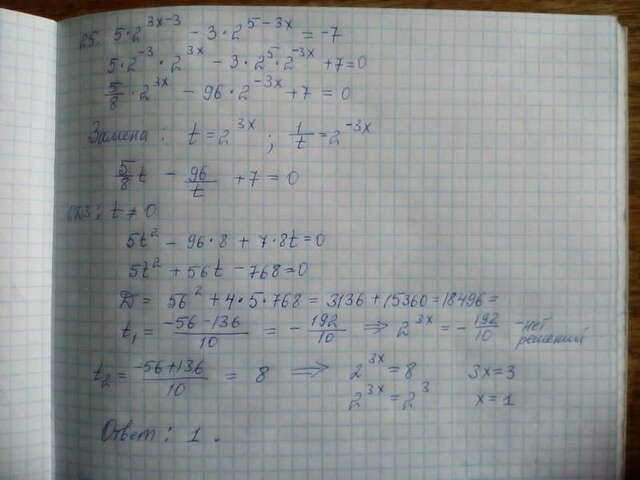 25. 5·2^(3x-3) - 3·2^(5-3x) = -7
5·2^(-3)·2^(3x) - 3·2^5·2^(-3x) + 7 = 0
5/8·2^(3x) - 96·2^(-3x) + 7 = 0
Замена: t = 2^(3x); 1/t = 2^(-3x)
5/8 t - 96/t + 7 = 0
ОДЗ: t ≠ 0
5t² - 96·8 + 7·8t = 0
5t² + 56t - 768 = 0
Д = 56² + 4·5·768 = 3136 + 15360 = 18496 =
t₁ = (-56-136)/10 = -192/10 ⇒ 2^(3x) = -192/10 - нет решений
t₂ = (-56+136)/10 = 8 ⇒ 2^(3x) = 8 3x = 3
2^(3x) = 2^3 x = 1
Ответ: 1.